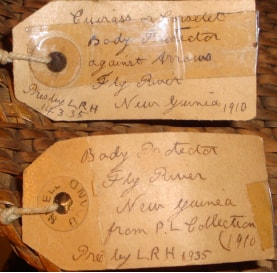 Cuirass or Corselet
Body Protector
against Arrows
Fly River
New Guinea 1910
Pres by L.R.H
14.3.35
Body Protector
Fly River
New Guinea
from P.L Collection
(1910)
Pres by L.R.H 1935